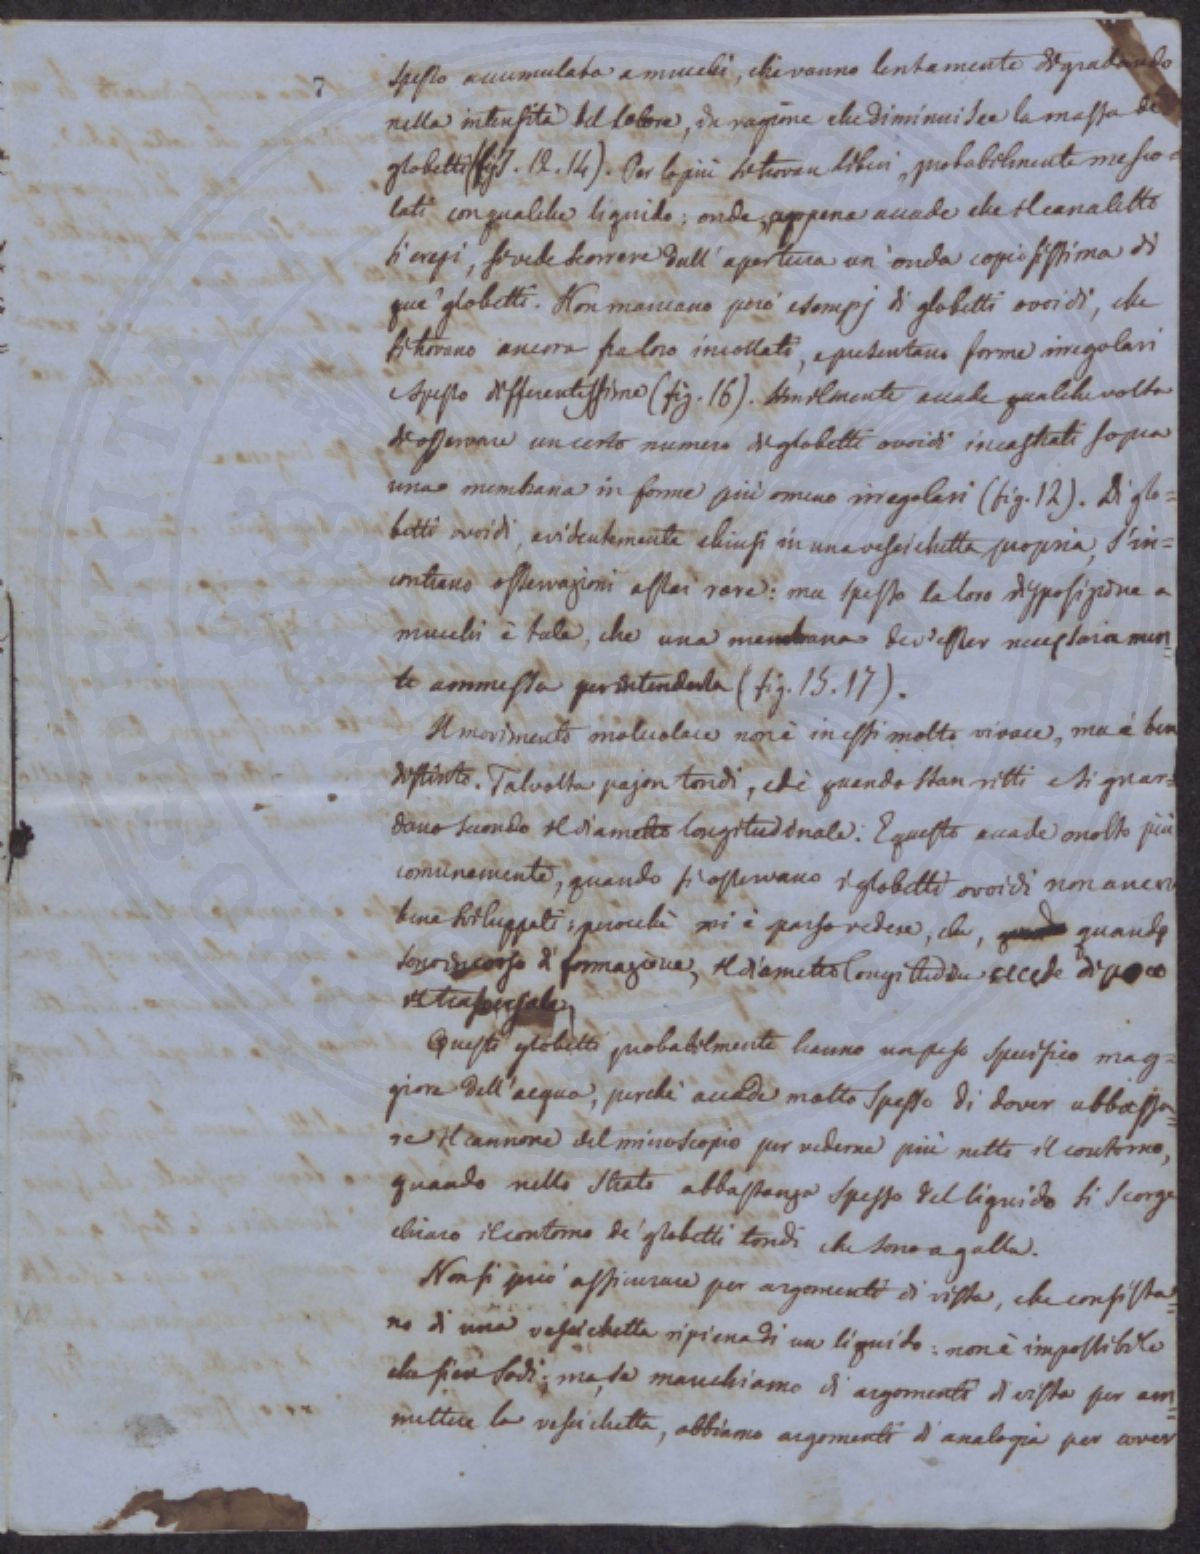 7
spesso accumulata a mucchi, che vanno lentamente digradando
nella intensità del colore, in ragione che diminuisce la massa de'
globetti (fig. 12. 14). Per lo più si trovan liberi, probabilmente mesco=
lati con qualche liquido: onde appena accade che il canaletto
si crepi, si vede scorrere dall'apertura un'onda copiosissima di
que' globetti. Non mancano però esempj di globetti ovoidi, che
si trovano ancora fra loro incollati, e presentano forme irregolari
e spesso differentissime (fig. 16). Similmente accade qualche volta
di osservare un certo numero di globetti ovoidi incastrati sopra
una membrana in forme più o meno irregolari (fig. 12). Di glo=
betti ovoidi, evidentemente chiusi in una vescichetta propria, s'in=
contrano osservazioni assai rare: ma spesso la loro disposizione a
mucchi è tale, che una membrana dev'esser necessariamen=
te ammessa per intenderla (fig. 15. 17).
Il movimento molecolare non è in essi molto vivace, ma è ben
distinto. Talvolta pajon tondi, ed è quando stan ritti e si guar=
dano secondo il diametro longitudinale. E questo accade molto più
comunemente, quando si osservano i globetti ovoidi non ancora
bene sviluppati; perocchè mi è parso vedere, che, quando
sono in corso di formazione, il diametro longitudin eccede di poco
il trasversale.
Questi globetti probabilmente hanno un peso specifico mag=
giore dell'acqua, perchè accade molto spesso di dover abbassa=
re il cannone del microscopio per vederne più netto il contorno,
quando nello strato abbastanza spesso del liquido si scorge
chiaro il contorno de' globetti tondi che sono a galla.
Non si può assicurare per argomenti di vista, che consista=
no di una vescichetta ripiena di un liquido: non è impossibile
che sien sodi; ma, se manchiamo di argomenti di vista per am=
mettere la vescichetta, abbiamo argomenti di analogia per